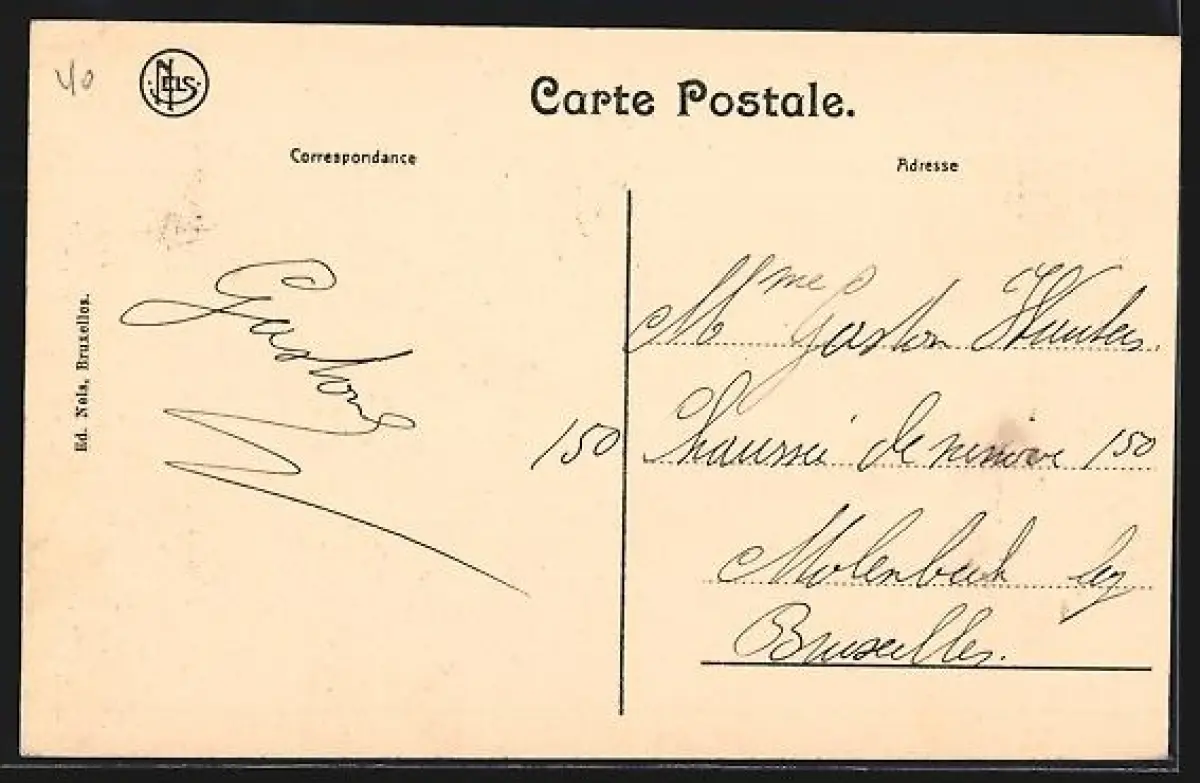 40
NELS
Carte Postale.
Correspondance
Adresse
Ed. Nels, Bruxelles.
Gaston
150
Mme Gaston
Chaussée de ninove 150
Molenbeek lez
Bruxelles.